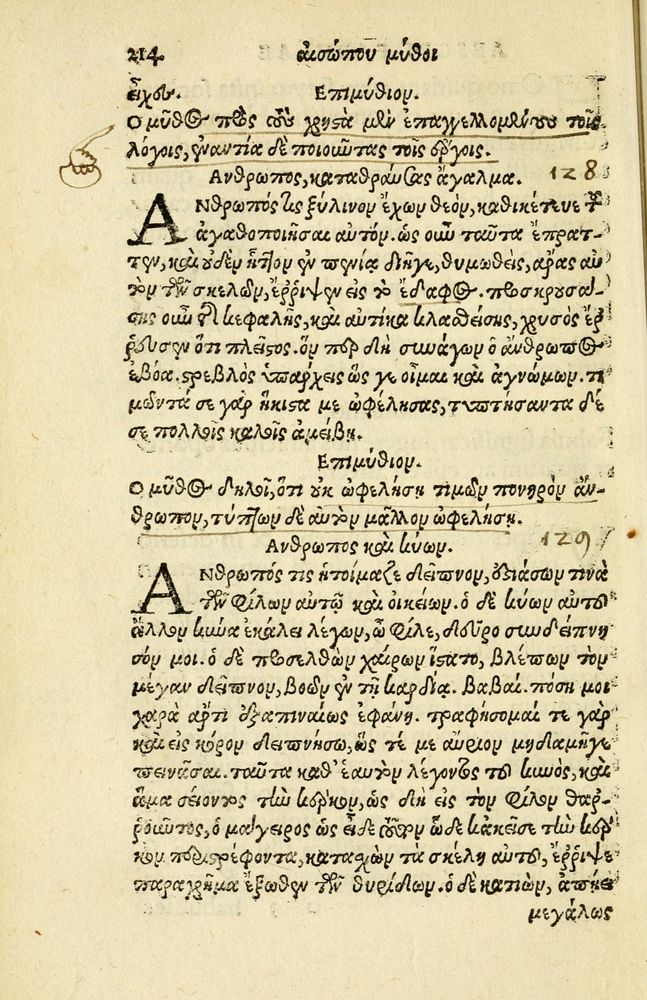 214 αἰσώπου μῦθοι
εἶχον. Επιμύθιον.
Ο μῦθος πρὸς τοὺς χρηστὰ μὲν ἐπαγγελλομένους τοῖς
λόγοις, ἐναντία δὲ ποιοῦντας τοῖς ἔργοις.
Ανθρωπος, καταθραύσας ἄγαλμα. 128
ΑΝθρωπός τις ξύλινον ἔχων θεὸν, καθικέτευε τοῦ
ἀγαθοποιῆσαι αὐτόν. ὡς οὖν ταῦτα ἔπρατ-
τεν, καὶ οὐδὲν ἧττον ἐν πενίᾳ διῆγε, θυμωθεὶς, ἄρας αὐ
τὸν τῶν σκελῶν, ἔῤῥιψεν εἰς τὸ ἔδαφος. προσκρουσά-
σης οὖν τῆς κεφαλῆς, καὶ αὐτίκα κλασθείσης, χρυσὸς ἔῤ
ῥευσεν ὅτι πλεῖστος. ὃν περ δὴ συνάγων ὁ ἄνθρωπος
ἐβόα. στρεβλὸς ὑπάρχεις ὥς γε οἶμαι καὶ ἀγνώμων. τι
μῶντά σε γὰρ ἥκιστα με ὠφέλησας, τυπτήσαντα δέ
σε πολλοῖς καλοῖς ἀμείβῃ.
Επιμύθιον.
Ο μῦθος δηλοῖ, ὅτι οὐκ ὠφελήσῃ τιμῶν πονηρὸν ἄν-
θρωπον, τύπτων δὲ αὐτὸν μᾶλλον ὠφελήσῃ.
Ανθρωπος καὶ κύων. 129
ΑΝθρωπός τις ἡτοίμαζε δεῖπνον, ἑστιάσων τινὰ
τῶν φίλων αὐτῷ καὶ οἰκείων. ὁ δὲ κύων αὐτοῦ
ἄλλον κύνα ἐκάλει λέγων, ὦ φίλε, δεῦρο συνδείπνη
σόν μοι. ὁ δὲ προσελθὼν χαίρων ἵστατο, βλέπων τὸν
μέγαν δεῖπνον, βοῶν ἐν τῇ καρδίᾳ. Βαβαί. πόση μοι
χαρὰ ἄρτι ἐξαπιναίως ἐφάνη. τραφήσομαί τε γὰρ
καὶ εἰς κόρον δειπνήσω, ὥς τέ με αὔριον μηδαμῆγε
πεινᾶσαι. ταῦτα καθ' ἑαυτὸν λέγοντος τοῦ κυνὸς, καὶ
ἅμα σείοντος τὴν κέρκον, ὡς δὴ εἰς τὸν φίλον θαῤ-
ῥοῦντος, ὁ μάγειρος ὡς εἶδε τοῦτον ὧδε κἀκεῖσε τὴν κέρ
κον περιστρέφοντα, κατασχὼν τὰ σκέλη αὐτοῦ, ἔῤῥιψε
παραχρῆμα ἔξωθεν τῶν θυρίδων. ὁ δὲ κατιὼν, ἀπῄει
μεγάλως